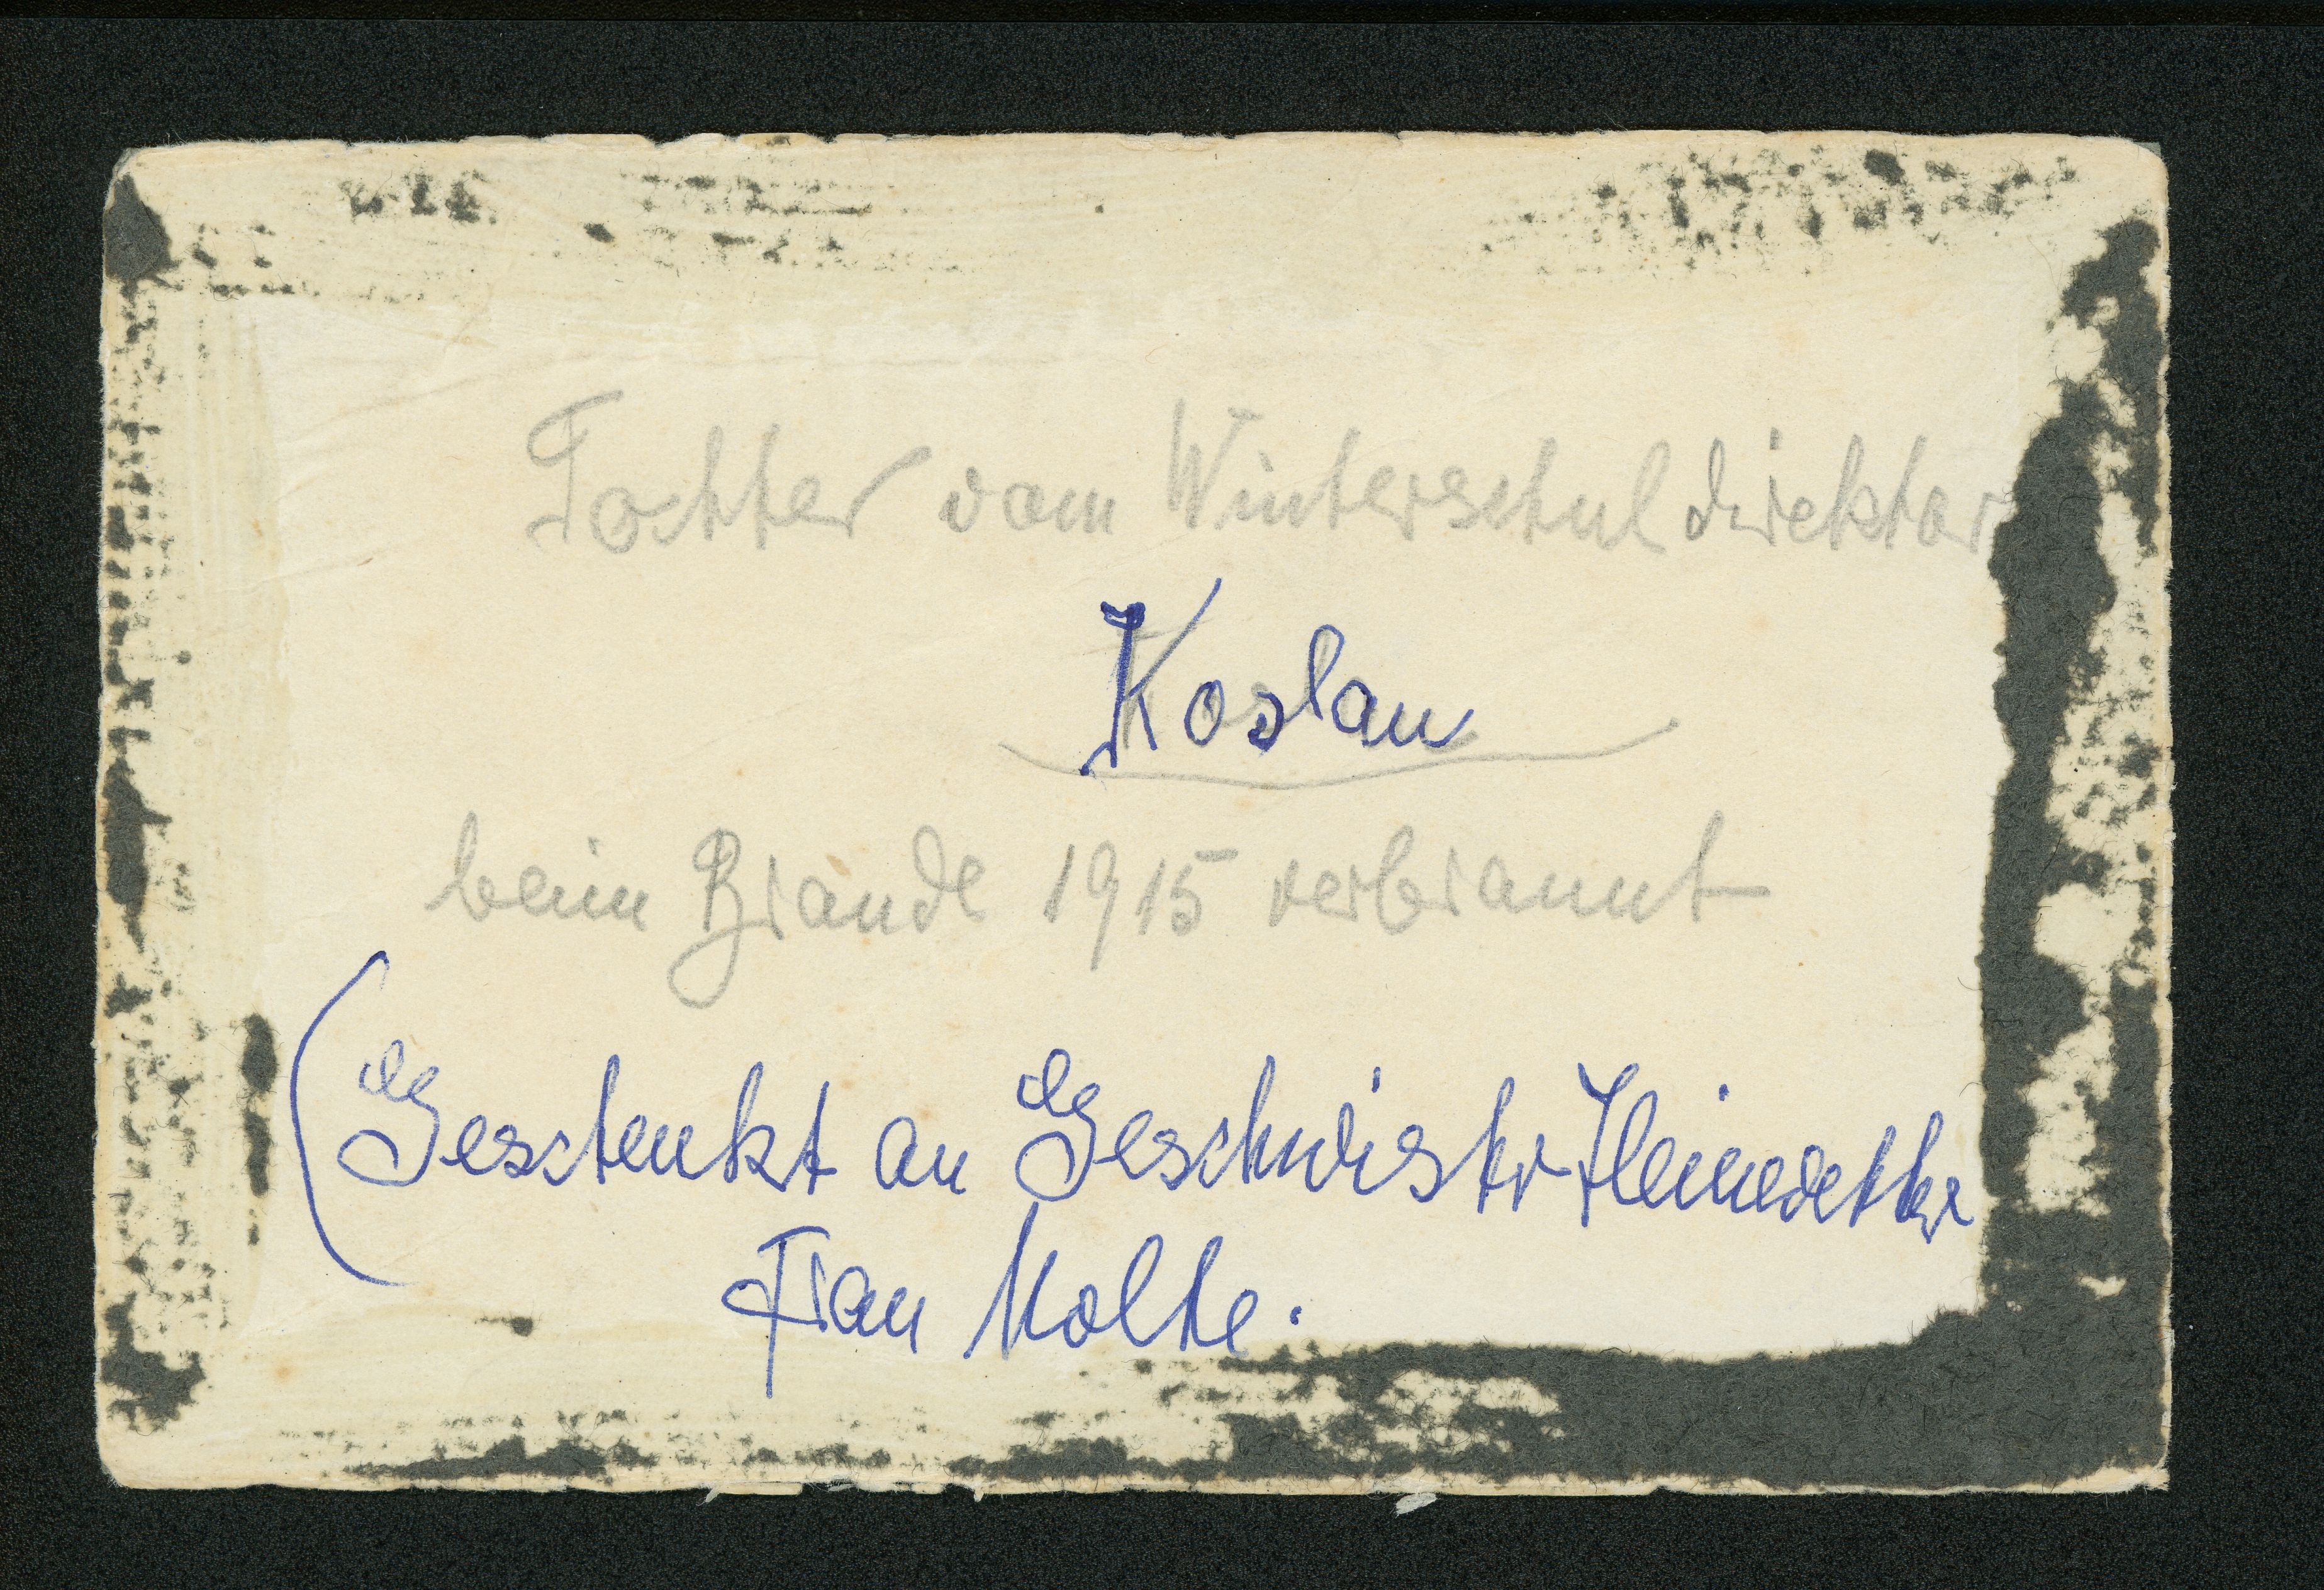 Tochter vom Winterschuldirektor
Koslau
beim Brande 1915 verbrannt
(Geschenkt an Geschwistr
Frau Nolte.